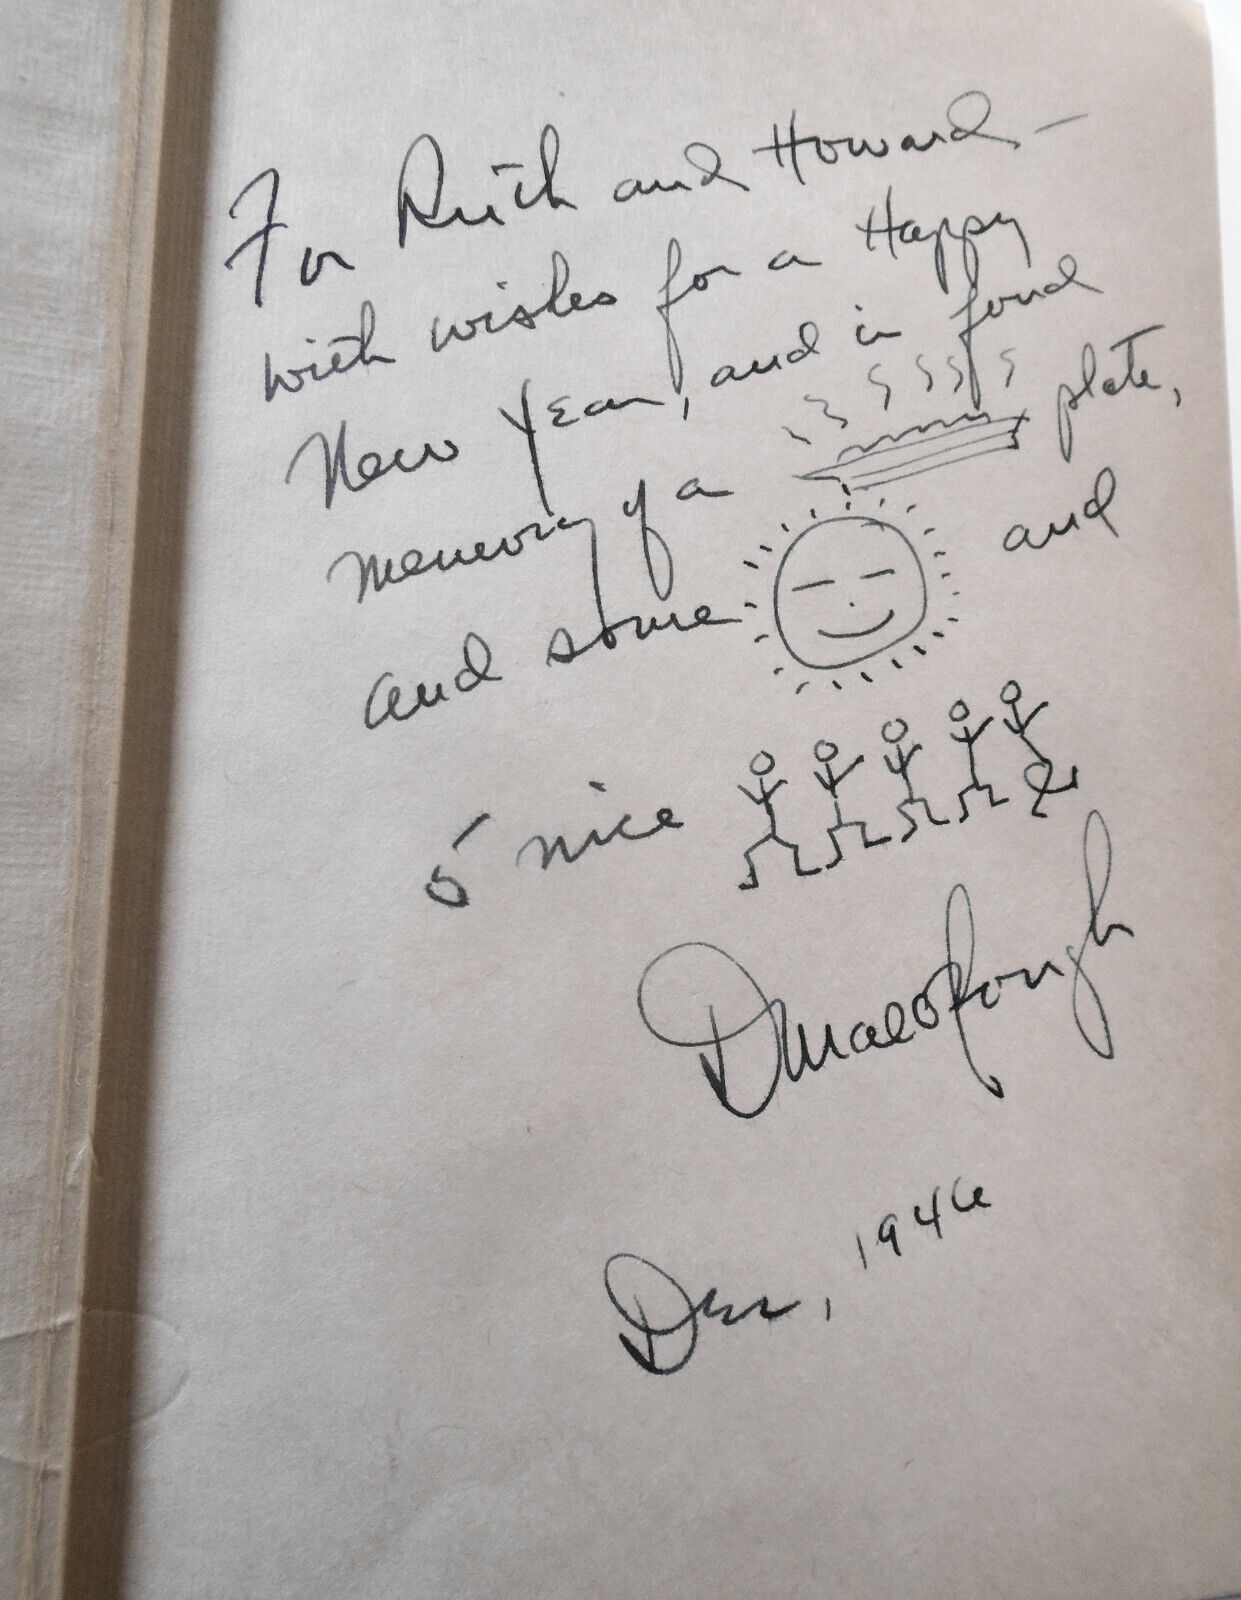 For Ruth and Howard —
with wishes for a Happy
New Year, and in fond
memory of a plate,
and some and
5 nice
Dec, 1946